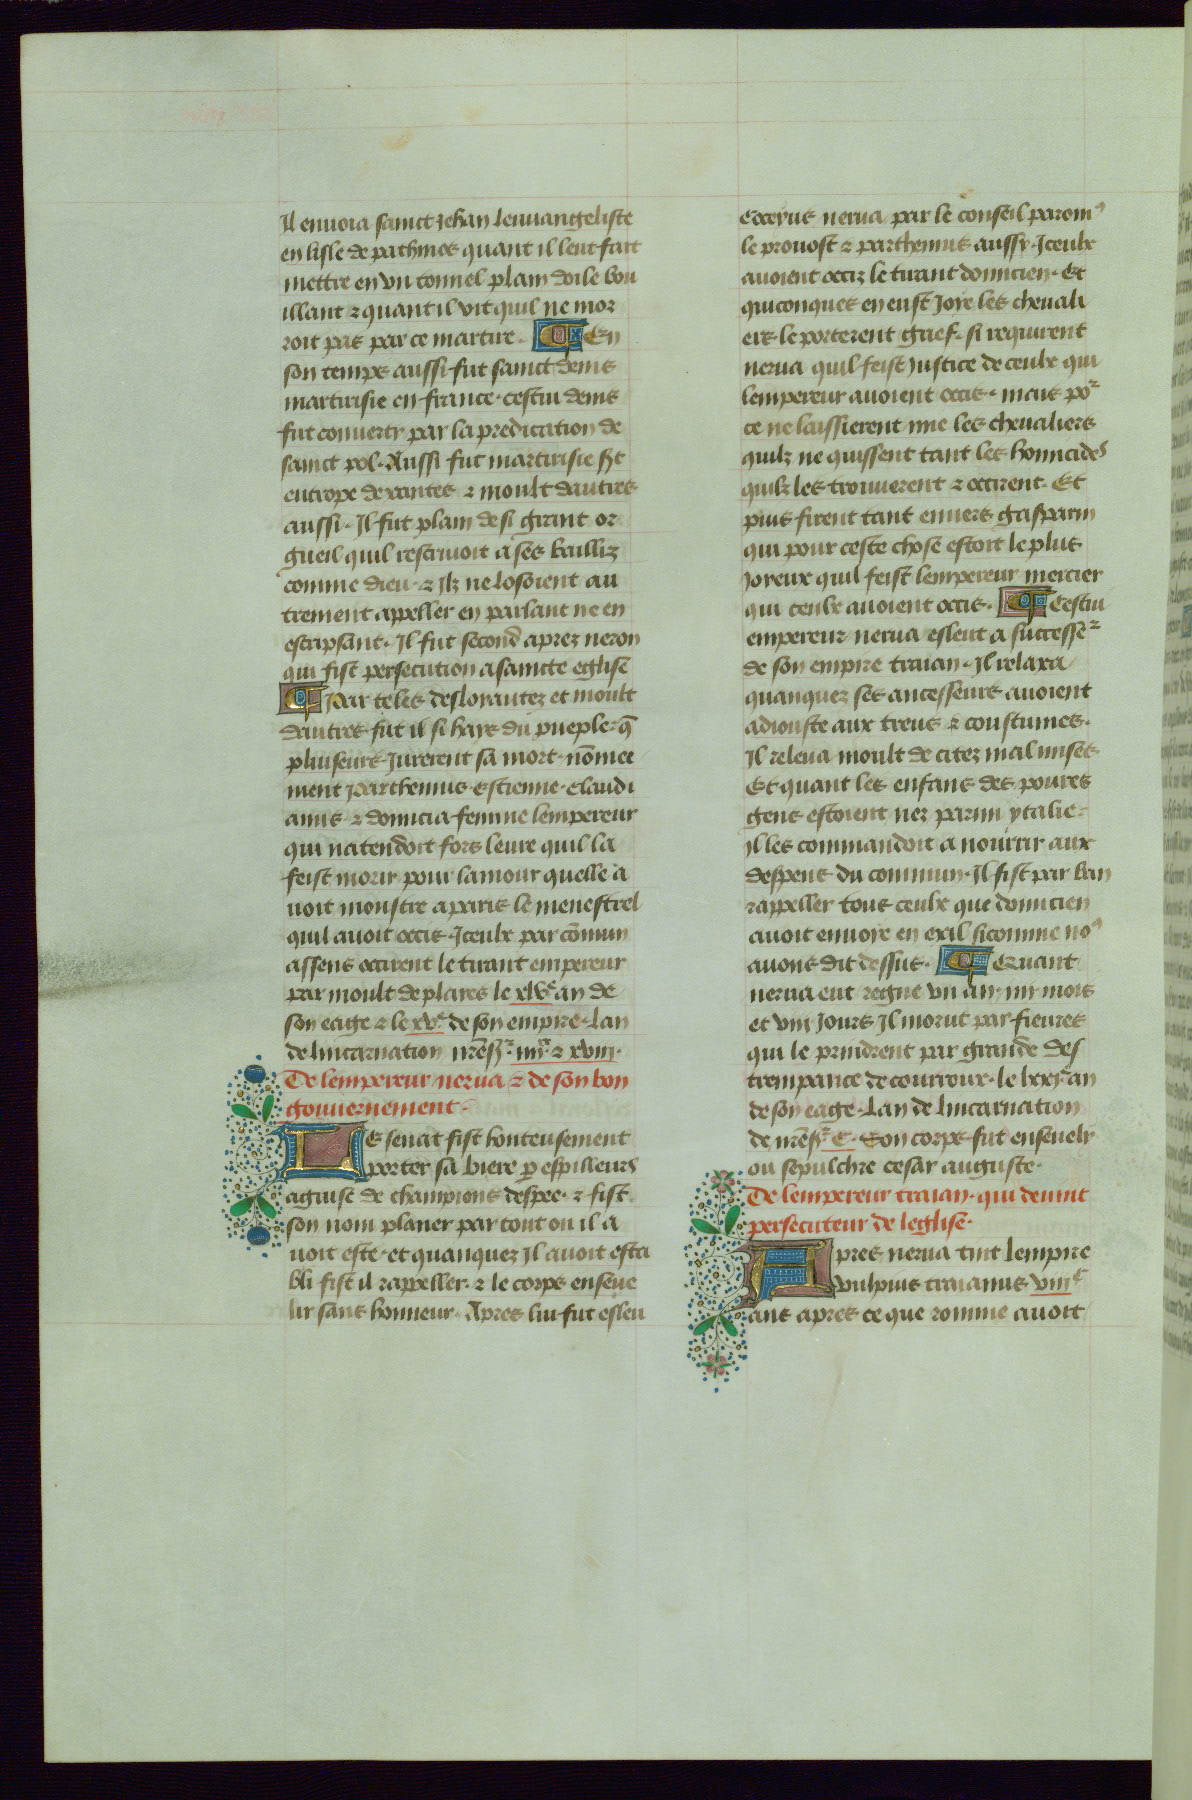 Il enuoia sainct Jehan leuuangeliste
en lisle de pathmos quant il leut fait
mettre en vn tonnel plain doile bou
illant & quant il vit quil ne mor
roit pas par ce martire. En
son temps aussi fut sainct denis
martirisie en france. cestui denis
fut conuerty par la predication de
sainct pol. Aussi fut martirisie st
eutrope de xantes & moult dautres
aussi. Il fut plain de si grant or
gueil quil rescriuoit a ses bailliz
comme dieu. & Ilz ne losoient au
trement appeller en parlant ne en
escripsant. Il fut second aprez neron
qui fist persecution a saincte eglise
Par teles desloyautez et moult
dautres fut il si hays du pueple. q̄
pluiseurs Jurerent sa mort. nōmee
ment parthemus. estienne. claudi
anus. & domicia femme lempereur
qui natendoit fors leure quil la
feist morir pour lamour quelle a
uoit monstre a paris le menestrel
quil auoit occis. Iceulx par cōmun
assens occirent le tirant empereur
par moult de plaies le xlve an de
son eage & le xve de son empire. Lan
de lincarnation nr̄e sr. iiiixx & xviii.
De lempereur nerua & de son bon
gouuernement.
Le senat fist honteusement
porter sa biere p̱ espilleurs
aguise de champions despee. & fist
son nom planer par tout ou il a
uoit este. et quanquez Il auoit esta
bli fist il rappeller. & le corps enseue
lir sans honneur. Apres lui fut esleu
coccerus nerua par le conseil parom9
le prouost & parthemus aussy. Iceulx
auoient occiz le tirant domicien. Et
quiconques en eust Joye les cheuali
ers le porterent grief. si requirent
nerua quil feist Justice de ceulx qui
lempereur auoient occis. mais por
ce ne laissierent mie les cheualiers
quilz ne quissent tant les homicides
quilz les trouuerent & occirent. Et
puis firent tant enuers gasparin
qui pour ceste chose estoit le plus
Joyeux quil feist lempereur mercier
qui ceulx auoient occis. Cestui
empereur nerua esleut a successer
de son empire traian. Il relaxa
quanquez ses ancesseurs auoient
adiouste aux treus & coustumes.
Il releua moult de citez mal mises
Et quant les enfans des poures
gens estoient nez parmi ytalie.
Il les commandoit a nourrir aux
despens du commun. Il fist par ban
rappeller tous ceulx que domicien
auoit enuoye en exil sicomme no9
auons dit dessus. Quant
nerua eut regne vn an. iiii mois
et viii Jours Il morut par fieures
qui le prindrent par grande des
trempance de courroux. le lxxije an
de son eage. Lan de lincarnation
de nr̄e sr. C. Son corps fut enseuely
ou sepulchre cesar auguste.
De lempereur traian. qui deuint
persecuteur de leglise.
Apres nerua tint lempire
vulpius traianus viiic
ans apres ce que romme auoit